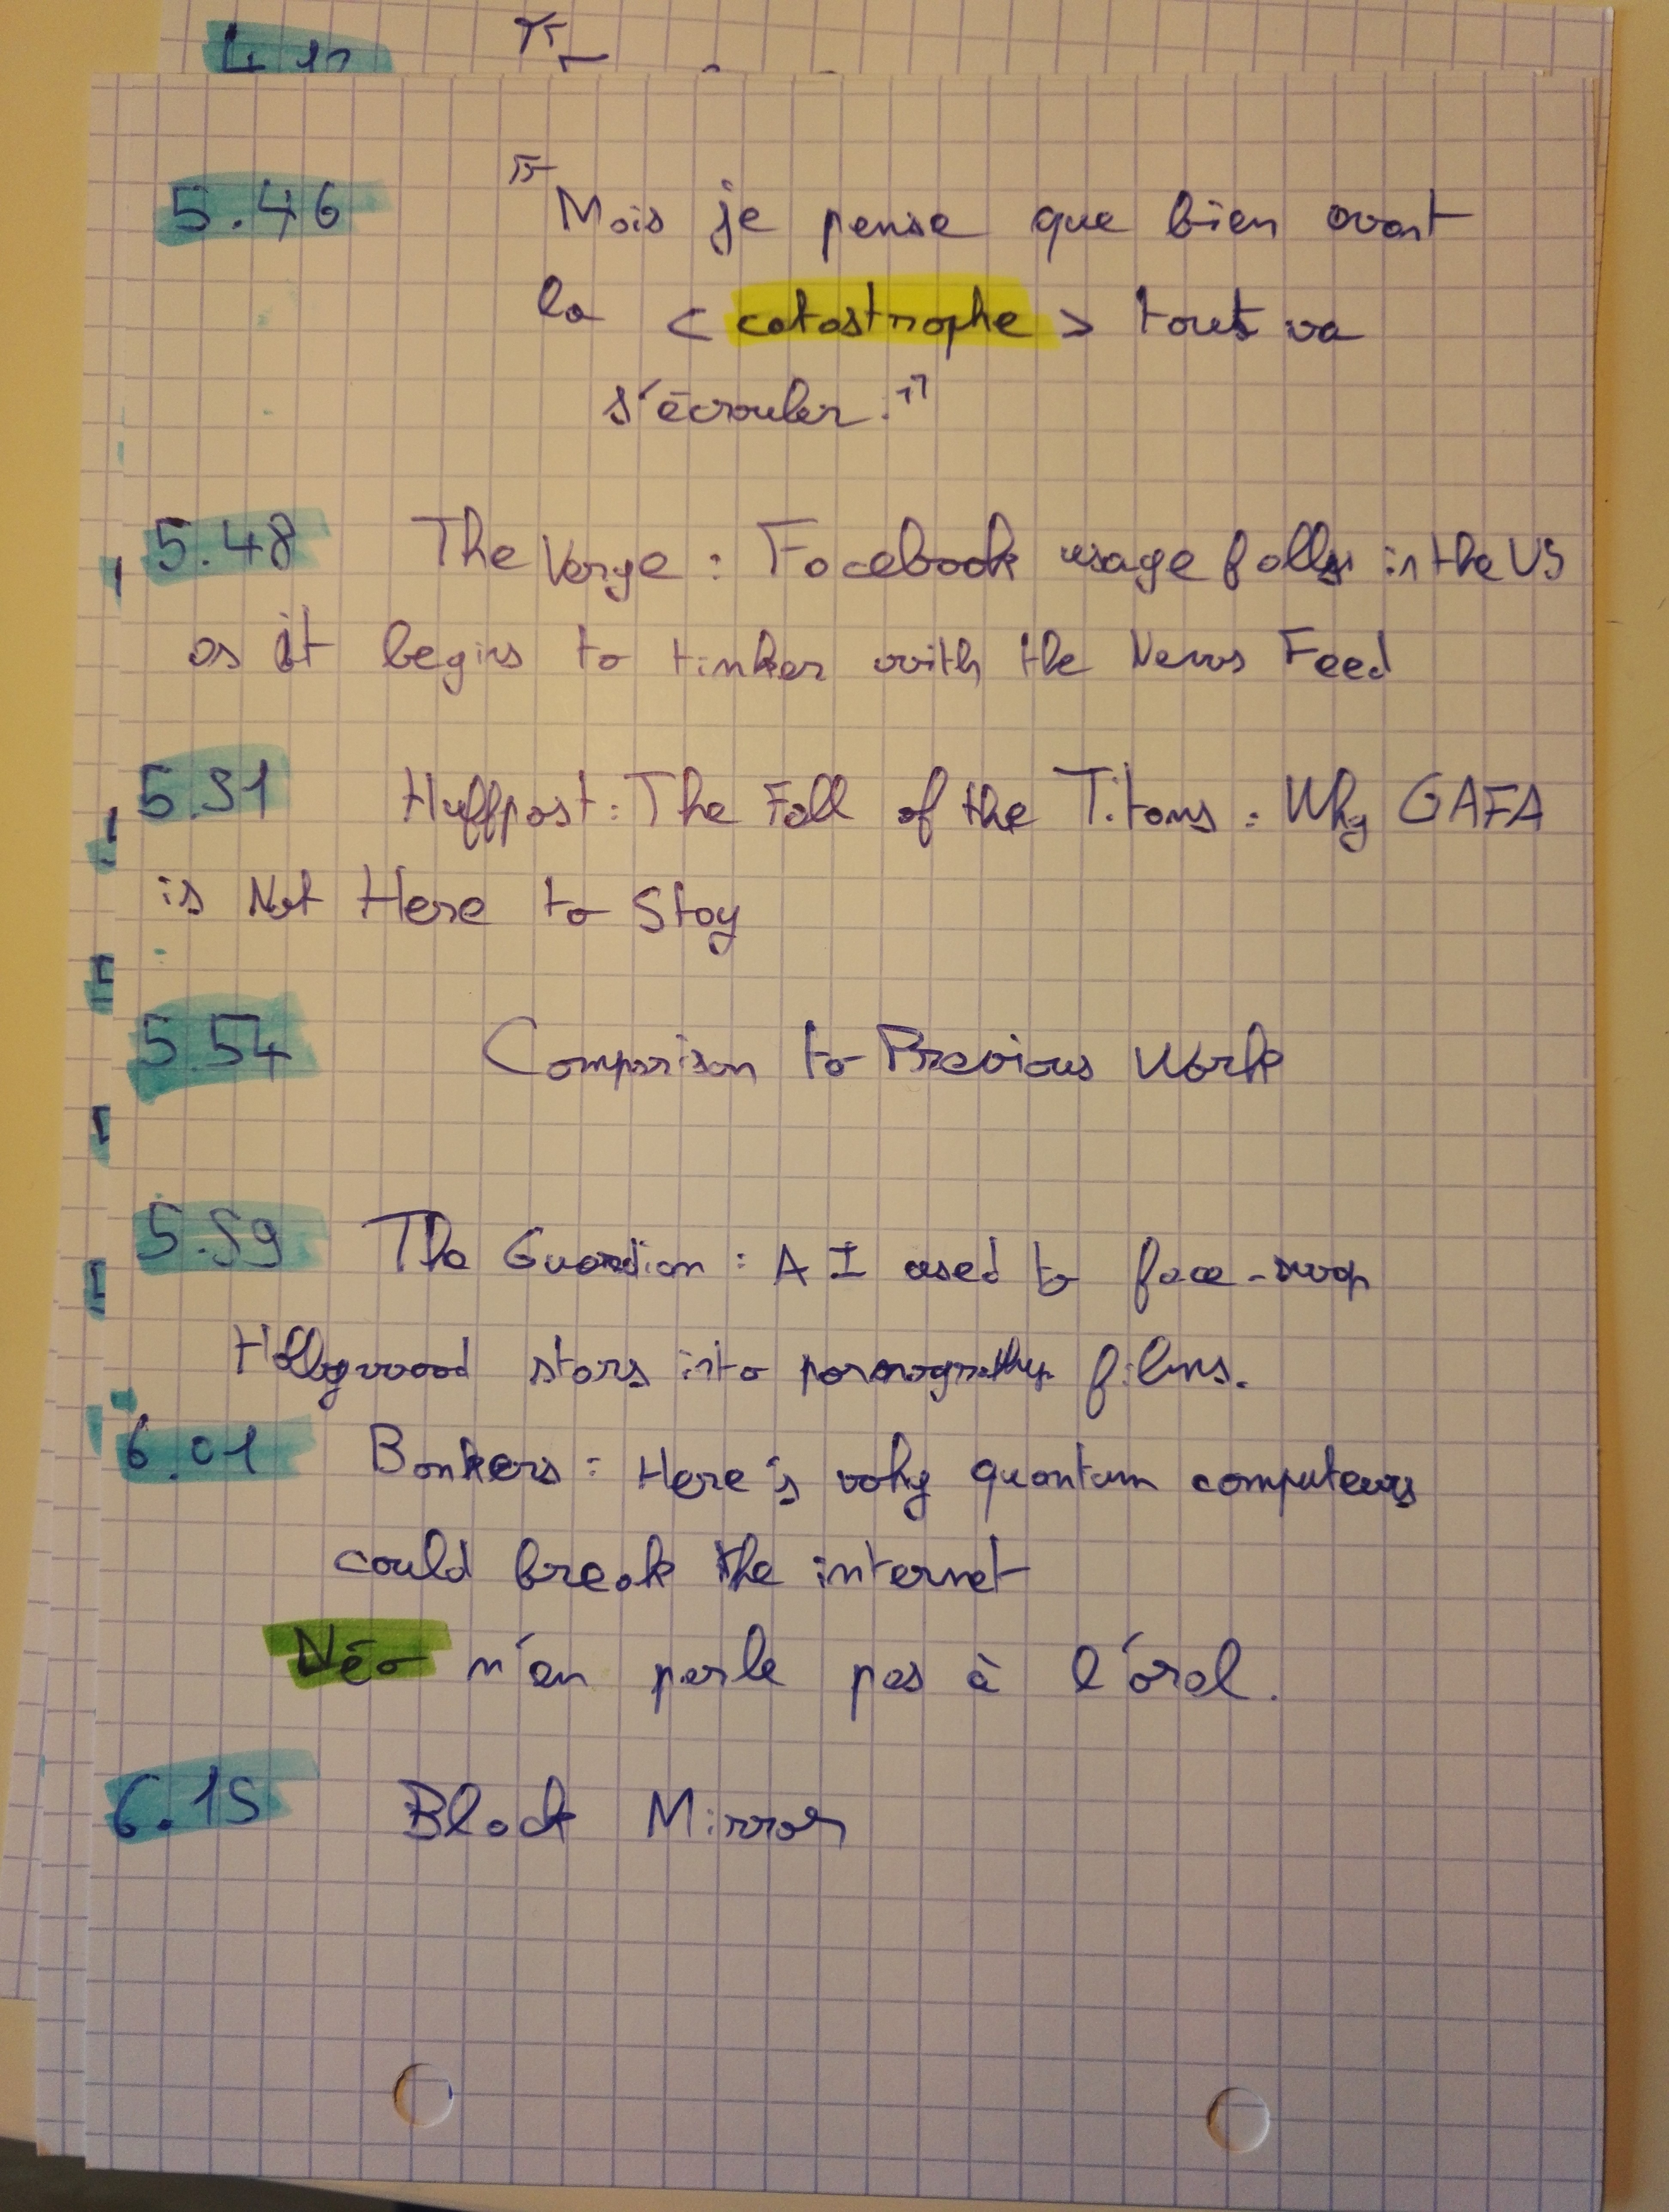 5.46 "Mais je pense que bien avant
la < catastrophe > tout va
s'écrouler."
5.48 The Verge : Facebook usage falls in the US
as it begins to tinker with the News Feed
5.51 Huffpost : The Fall of the Titans : Why GAFA
is Not Here to Stay
5.54 Comparison to Previous Work
5.59 The Guardian : AI used to face-swap
Hollywood stars into pornography films.
6.01 Bonkers : Here's why quantum computers
could break the internet
Néo n'en parle pas à l'oral.
6.15 Black Mirror